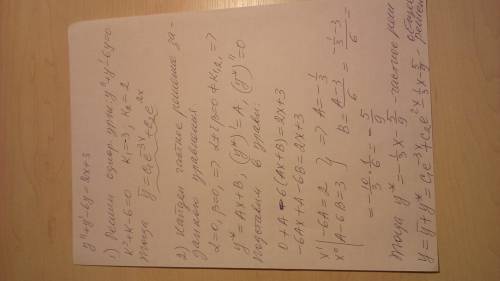 y''+y'-6y=2x+3
1) Решим однор. ур-ие: y''+y'-6y=0
k²+k-6=0 k₁=-3, k₂=2
Тогда ȳ=c₁e^{-3x}+c₂e^{2x}
2) Найдём частное решение за-
данного уравнения
α=0, β=0, => α±iβ=0≠k₁,₂, =>
y*=Ax+B, (y*)'=A, (y*)''=0
Подставим в уравн:
0+A-6(Ax+B)=2x+3
-6Ax+A-6B=2x+3
x¹ | -6A=2 } => A=-1/3
x⁰ | A-6B=3 B=(A-3)/6=(-1/3-3)/6
=-10/3·1/6=-5/9
Тогда y*=-1/3x-5/9-частное реш
y=ȳ+y*=c₁e^{-3x}+c₂e^{2x}-1/3x-5/9-общее решен